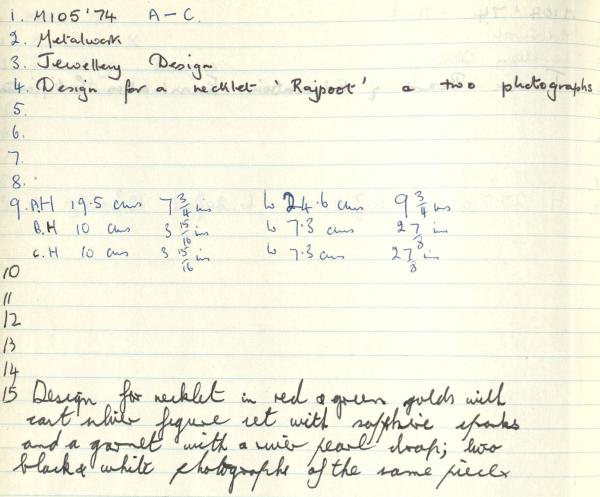 1. M105'74 A-C.
2. Metalwork
3. Jewellery Design
4. Design for a necklet 'Rajpoot' & two photographs
5.
6.
7.
8.
9. A.H 19.5 cms 7 3/4 ins W 24.6 cms 9 3/4 ins
B.H 10 cms 3 15/16 ins W 7.3 cms 2 7/8 in
C.H 10 cms 3 15/16 ins W 7.3 cms 2 7/8 in
10
11
12
13
14
15 Design for necklet in red & green golds with
cast silver figure set with sapphire sparks
and a garnet with a river pearl drop; two
black & white photographs of the same piece